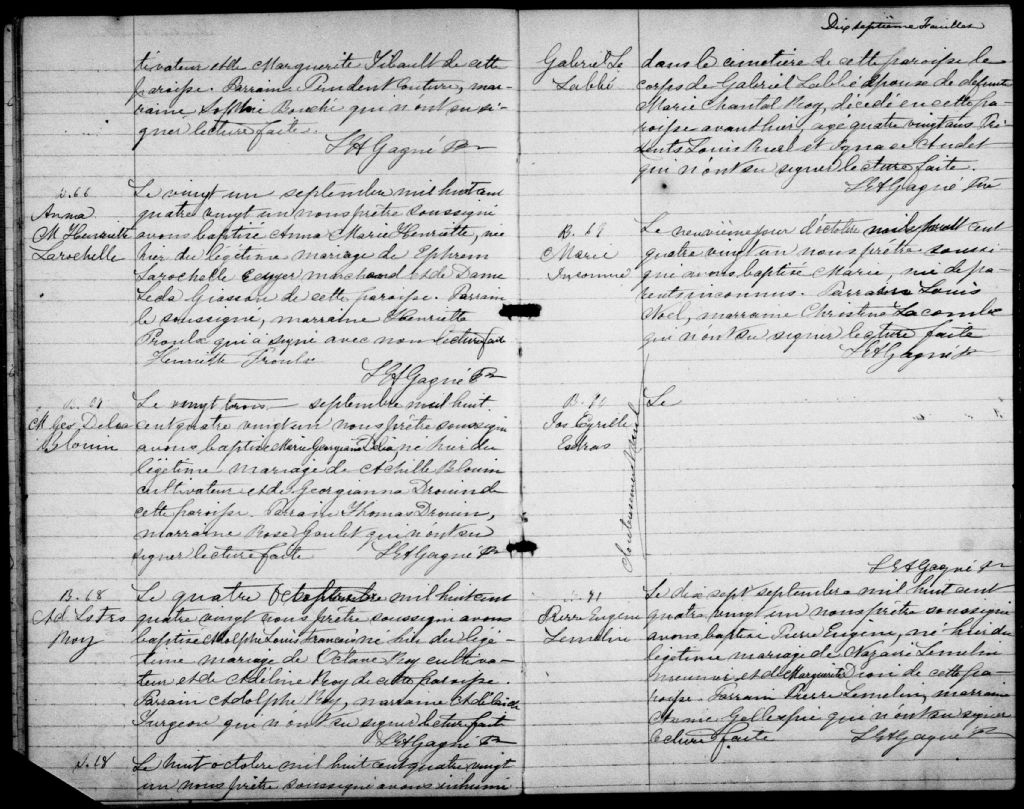 tivateur et de Marguerite Tibault de cette
paroisse. Parrain Prudent Couture, mar-
raine Sophie Bouché qui n'ont su si-
gner lecture faite.
L H Gagné Ptre
B. 66
Anna
M Henriette
Larochelle
Le vingt un septembre mil huit cent
quatre vingt un nous prêtre soussigné
avons baptisé Anna Marie Henriette, née
hier du légitime mariage de Ephrem
Larochelle Ecuyer marchand et de Dame
Leda Giasson de cette paroisse. Parrain
le soussigné, marraine Henriette
Proulx qui a signé avec nous lecture faite
Henriette Proulx
L H Gagné Ptre
M Geo Delia
Blouin
Le vingt trois septembre mil huit
cent quatre vingt un nous prêtre soussigné
avons baptisé Marie Georgiana Delia, né hier du
légitime mariage de Achille Blouin
cultivateur et de Georgianna Drouin de
cette paroisse. Parrain Thomas Drouin,
marraine Rose Goulet qui n'ont su
signer lecture faite L H Gagné Ptre
B. 68
Ad Ls frs
Roy
Le quatre Octobre mil huit cent
quatre vingt nous prêtre soussigné avons
baptisé Adolphe Louis Francois né hier du légi-
time mariage de Octave Roy cultiva-
teur et de Adéline Roy de cette paroisse.
Parrain Adolphe Roy, marraine Adelaide
Turgeon qui n'ont su signer lecture faite
L H Gagné Ptre
S. 18
Le huit octobre mil huit cent quatre vingt
un nous prêtre soussigné avons inhumé
Dix septième Feuillet
Gabriel
Labbé
dans le cimetière de cette paroisse le
corps de Gabriel Labbé épouse de défunte
Marie Chantal Roy, décédé en cette pa-
roisse avant hier, agé quatre vingt ans Pré-
sents Louis et Ignace Audet
qui n'ont su signer lecture faite.
L H Gagné Ptre
B. 69
Marie
Inconnue
Le neuvième jour d'octobre mil huit cent
quatre vingt un nous prêtre soussi-
gné avons baptisé Marie, née de pa-
rents inconnus. Parrain Louis
Noel, marraine Christine Lacombe
qui n'ont su signer lecture faite
L H Gagné Ptre
Jos Cyrille
Esdras
Le
L H Gagné Ptre
Pierre Eugène
Lemelin
Le dix sept septembre mil huit cent
quatre vingt un nous prêtre soussigné
avons baptisé Pierre Eugène, né hier du
légitime mariage de Nazaire Lemelin
meunier et de Marguerite Dion de cette pa-
roisse. Parrain Pierre Lemelin, marraine
Gellespie qui n'ont su signer
lecture faite L H Gagné Ptre